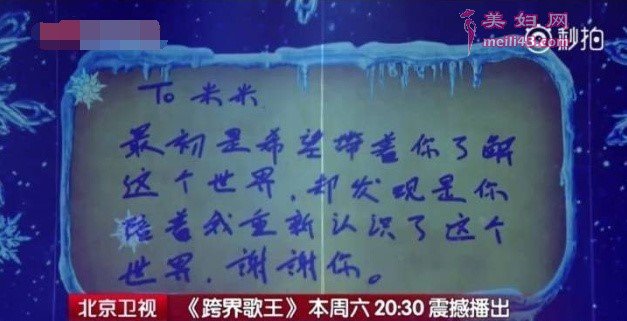 美妇网
meili43.com
秒拍
To 米米
最初是希望带着你了解
这个世界,却发现是你
陪着我重新认识了这个
世界,谢谢你。
北京卫视 《跨界歌王》本周六 20:30 震撼播出